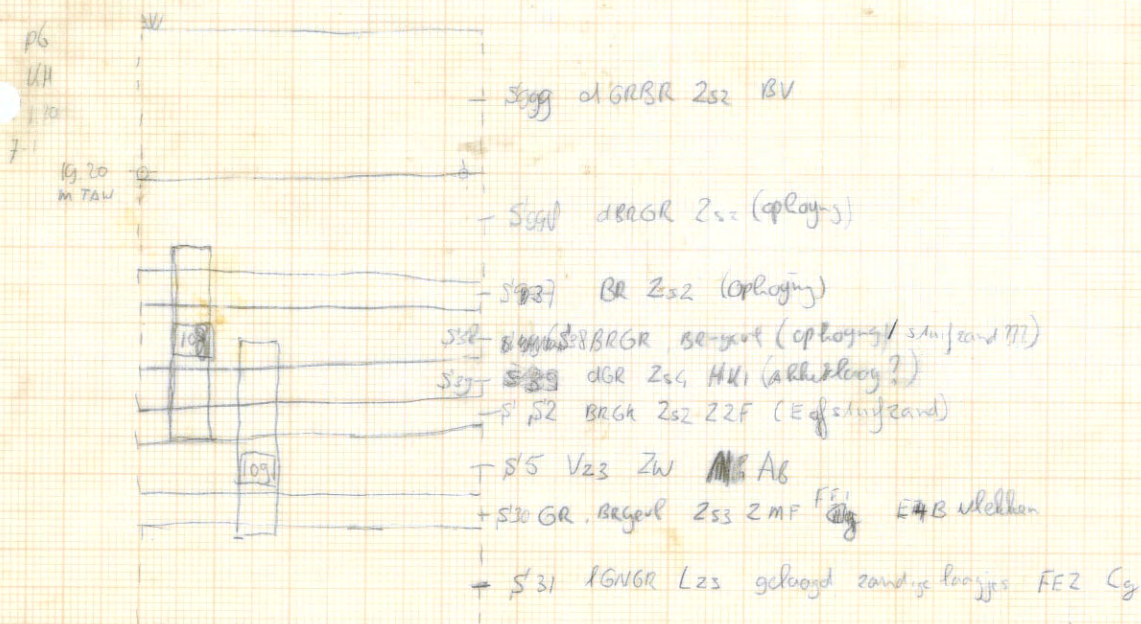 p6
VH
1:10
7
W
S999 dGRBR Zs2 BV
19.20
m TAW
S998 dBRGR Zs2 (ophoging)
S37 BR Zs2 (ophoging)
S38 BRGR BR-gevl (ophoging / stuifzand ???)
108
S39 dGR Zs4 HK1 (akkerlaag?)
S52 BRGR Zs2 ZZF (E of stuifzand)
109
S5 Vz3 ZW Ab
S30 GR. BRgevl Zs3 ZMF FE1 E+B vlekken
S31 lGNGR Lz3 gelaagd zandige laagjes FE2 Cg